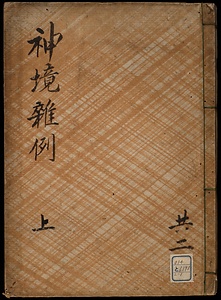 神境雜例
上
共二